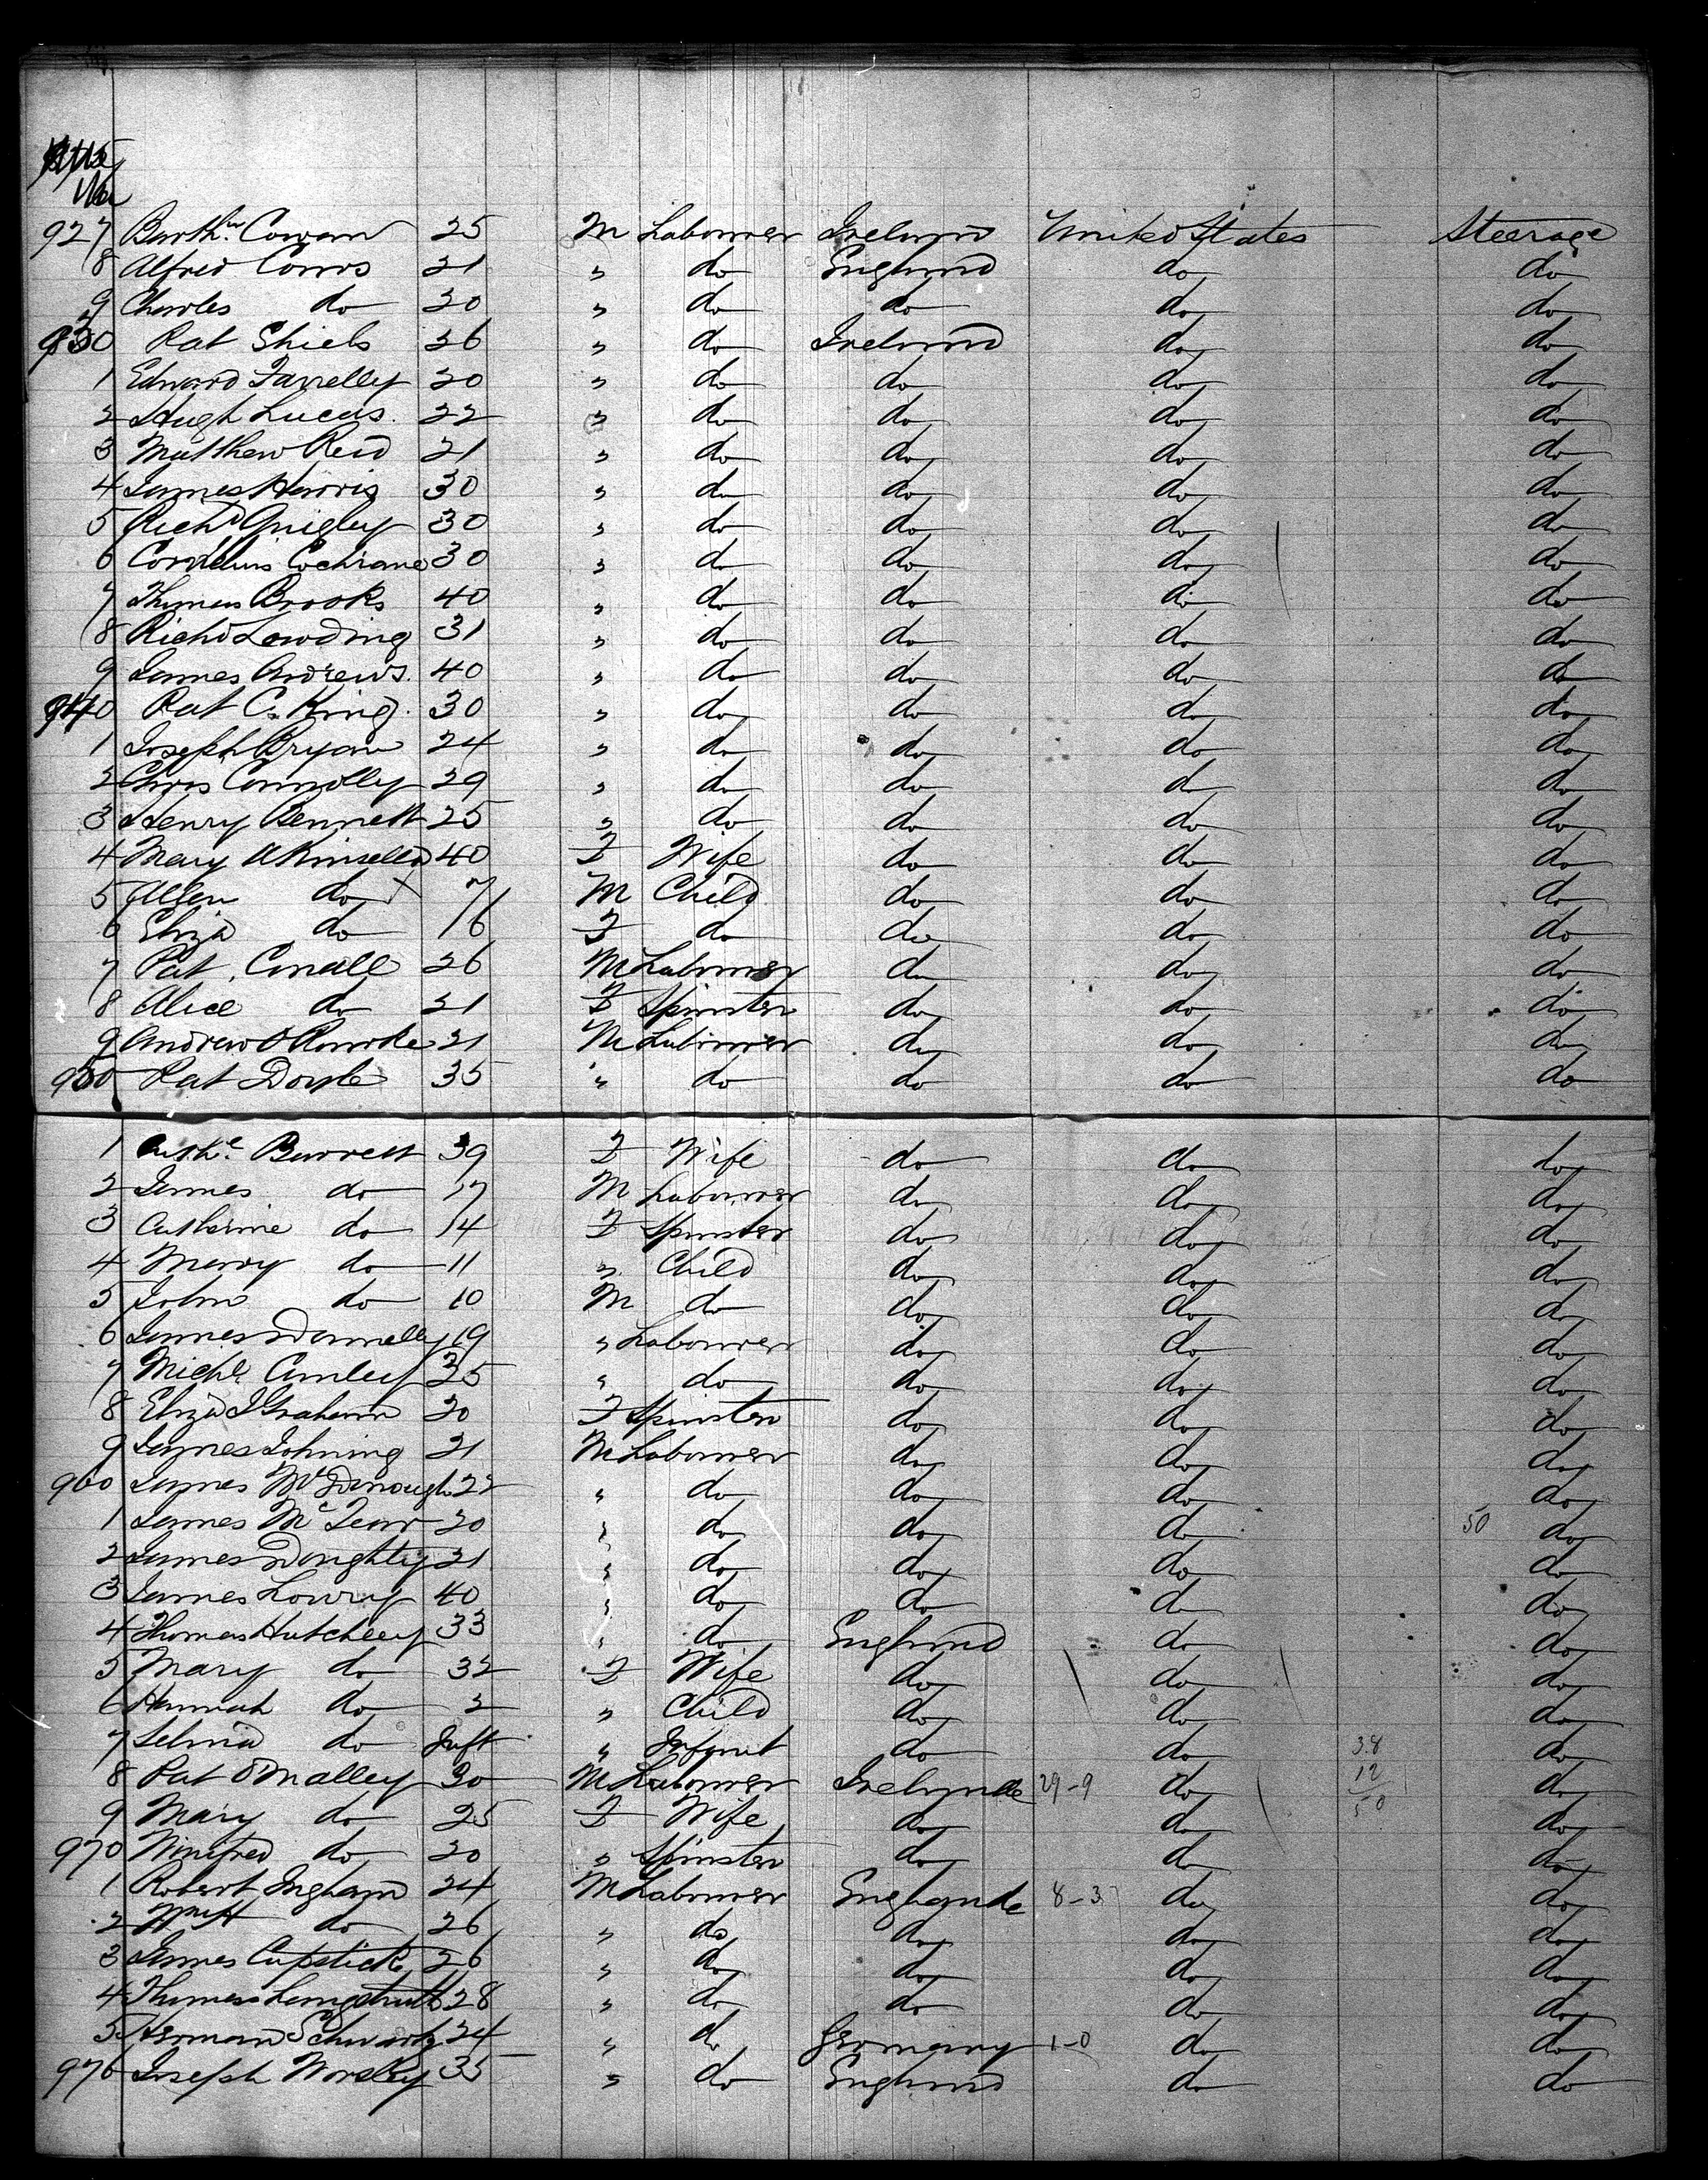 No
927 Barthw. Cowan 25 M Labourer Ireland United States Steerage
8 Alfred Conros 21 " do England do do
9 Charles do 20 " do do do do
930 Pat Shiels 26 " do Ireland do do
1 Edward Farrelly 20 " do do do do
2 Hugh Lucas. 22 " do do do do
3 Matthew Reid 21 " do do do do
4 James Harris 30 " do do do do
5 Richd Quigley 30 " do do do do
6 Cornelius Cochrane 30 " do do do do
7 Thomas Brooks 40 " do do do do
8 Richd Lowding 31 " do do do do
9 James Andrews. 40 " do do do do
940 Pat C. King. 30 " do do do do
1 Joseph Bryan 24 " do do do do
2 Chros Connolly 29 " do do do do
3 Henry Bennett 25 " do do do do
4 Mary A Kinsella 40 F Wife do do do
5 Allen do X 7 M Child do do do
6 Eliza do 6 F do do do do
7 Pat. Conall 26 M Labourer do do do
8 Alice do 21 F Spinster do do do
9 Andrew O Rourke 21 M Labourer do do do
950 Pat Doyle 35 " do do do do
1 Cathe. Barrett 39 F Wife do do do
2 James do 17 M Labourer do do do
3 Catherine do 14 F Spinster do do do
4 Mary do 11 " Child do do do
5 John do 10 M do do do do
6 James Donnelly 19 " Labourer do do do
7 Michl. Conley 25 " do do do do
8 Eliza J Graham 20 F Spinster do do do
9 James Johning 21 M Labourer do do do
960 James McDonough 22 " do do do do
1 James Mc Tear 20 " do do do 50 do
2 James Doughty 21 " do do do do
3 James Lowry 40 " do do do do
4 Thomas Hutchley 33 " do England do do
5 Mary do 32 F Wife do do do
6 Hannah do 2 " Child do do do
7 Selina do Inft " Infant do do 38 do
8 Pat O'Malley 30 M Labourer Ireland 29-9 do 12 do
50
9 Mary do 25 F Wife do do do
970 Winifred do 20 " Spinster do do do
1 Robert Ingham 24 M Labourer England 8-3 do do
2 Wm H do 26 " do do do do
3 James Capstick 26 " do do do do
4 Thomas Langstruth 28 " do do do do
5 Herman Schwartz 24 " do Germany 1-0 do do
976 Joseph Worsley 35 " do England do do